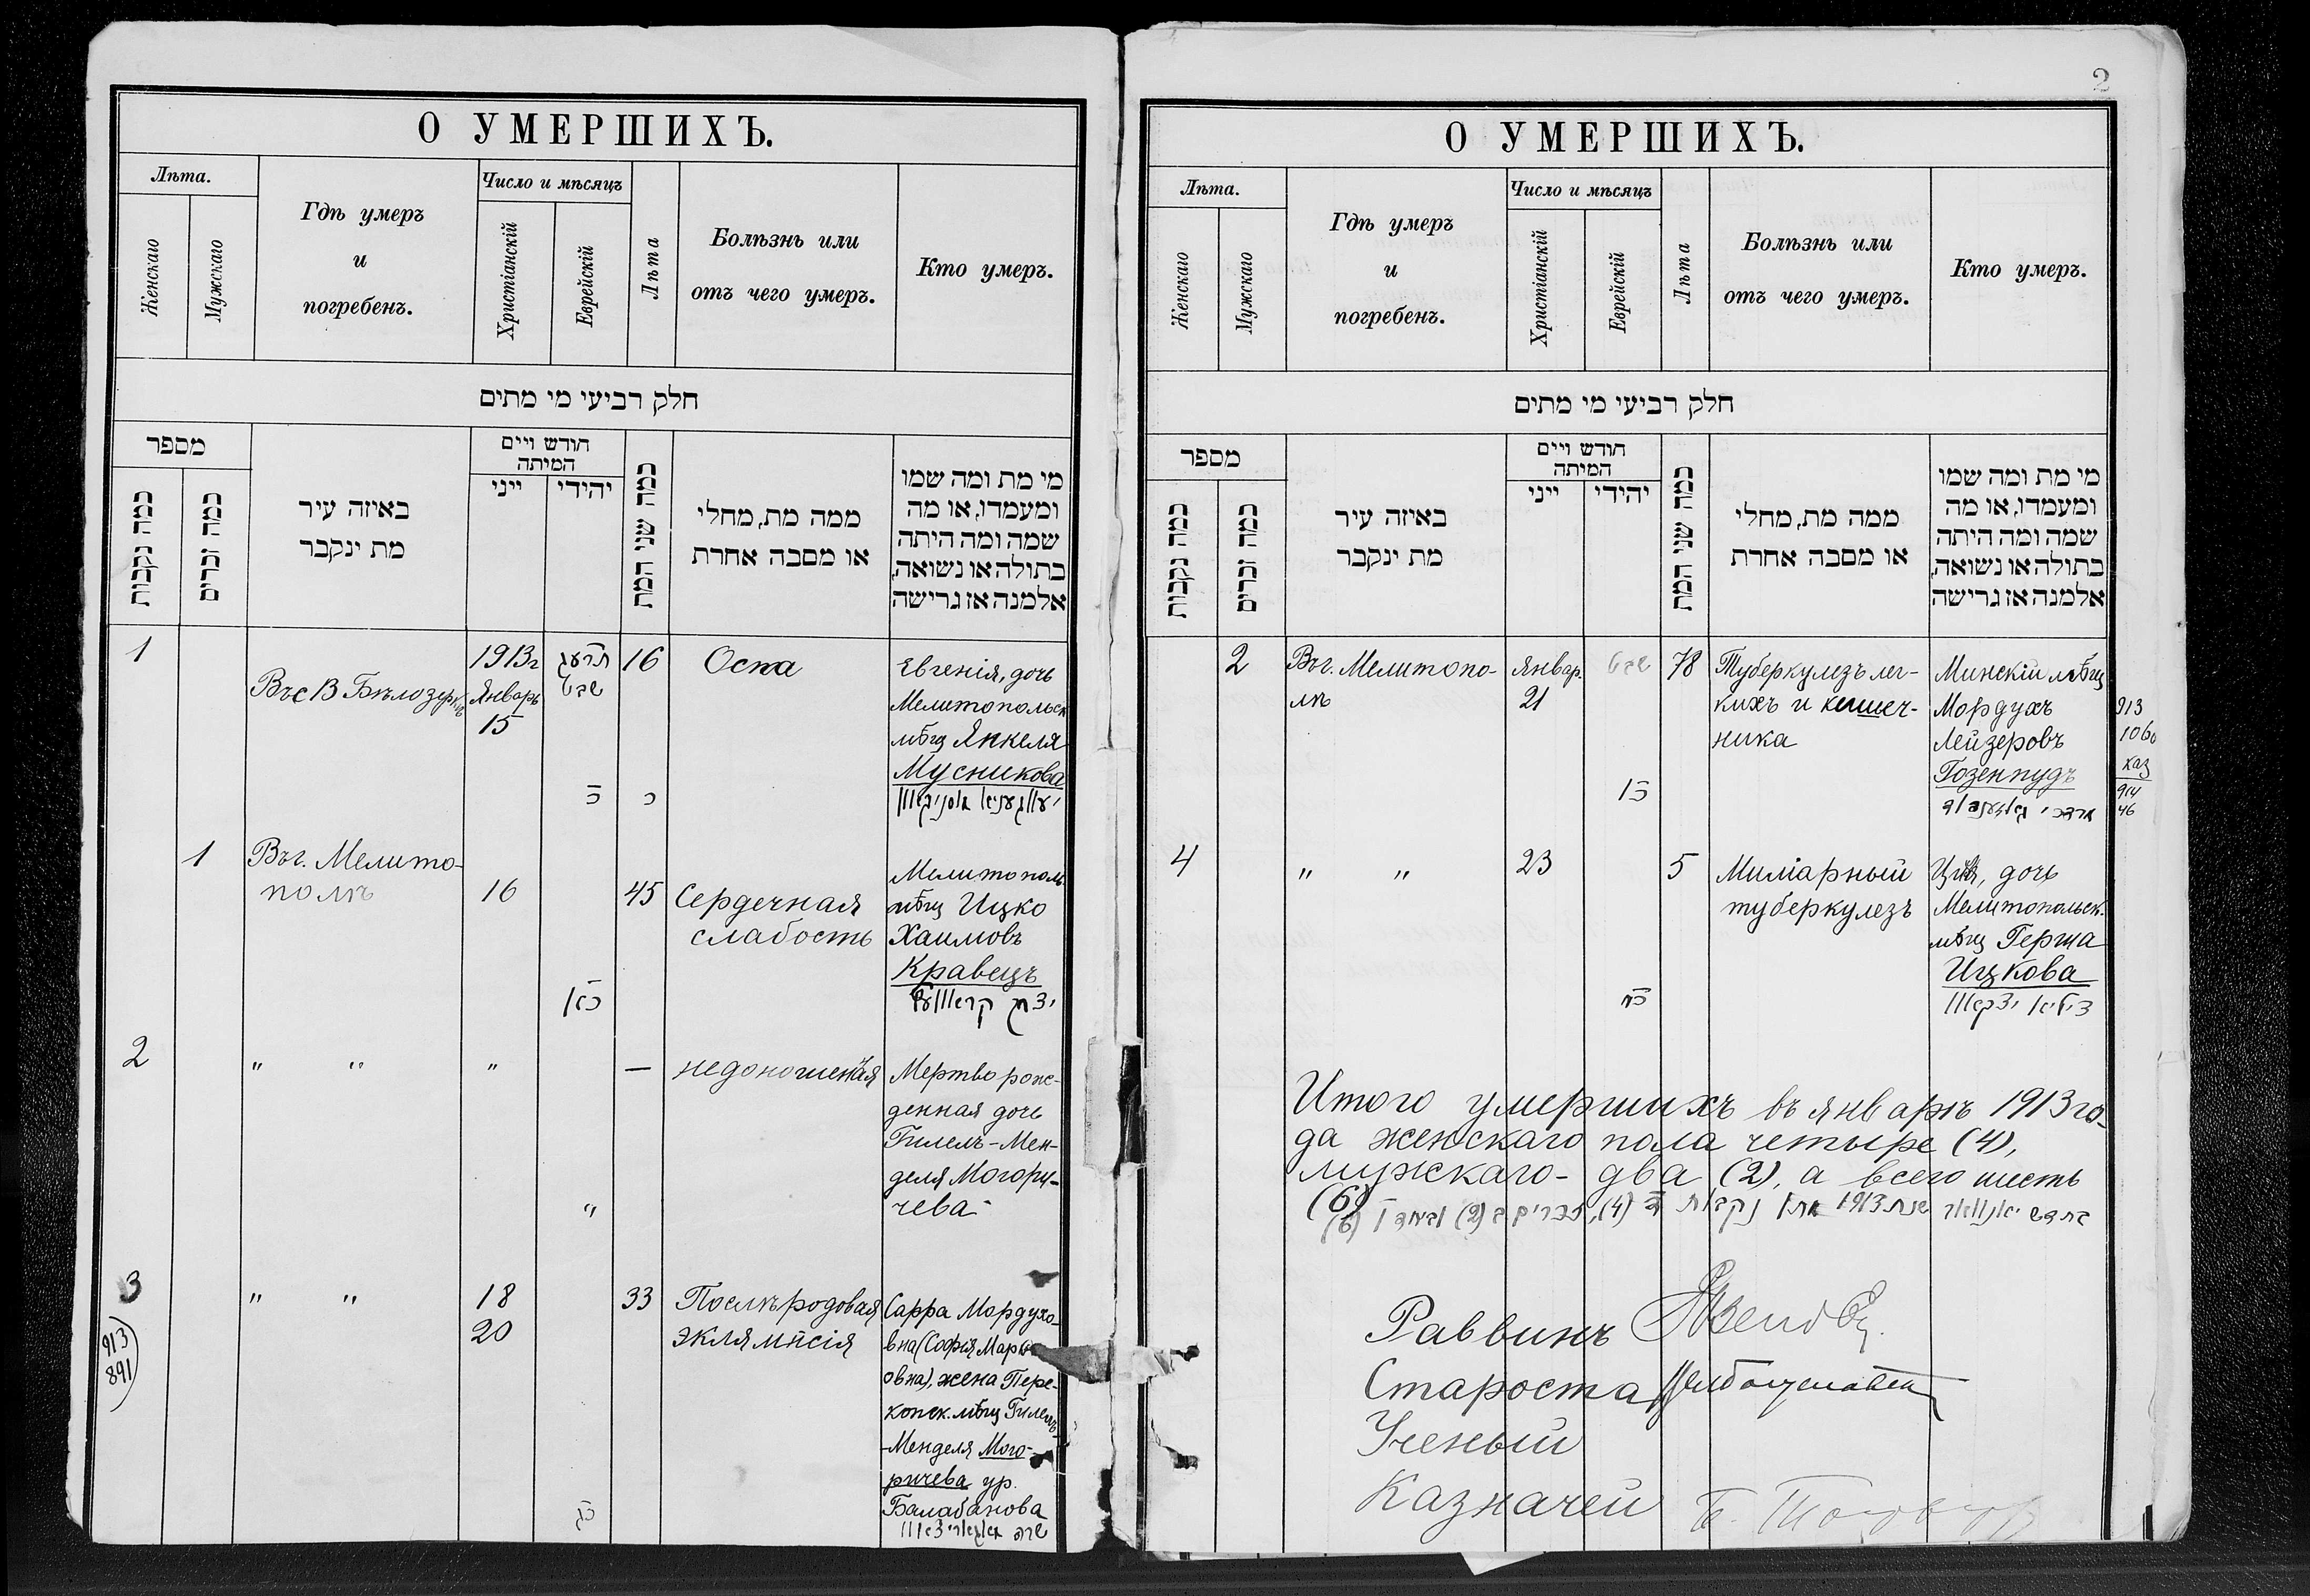 О УМЕРШИХЪ.
Лѣта.
Женскаго
Мужскаго
Гдѣ умеръ
и
погребенъ.
Число и мѣсяцъ
Христіанскій
Еврейскій
Лѣта
Болѣзнь или
отъ чего умеръ.
Кто умеръ.
חלק רביעי מי מתים
מספר
כמה נקבות
כמה זכרים
באיזה עיר
מת ינקבר
חודש ויים
המיתה
ייני
יהידי
כמה שני המת
ממה מת, מחלי
או מסבה אחרת
מי מת ומה שמו
ומעמדו, או מה
שמה ומה היתה
בתולה או נשואה,
אלמנה אז גרישה
1
Въ с В Бѣлозеркѣ
1913г
Январь
15
תרעג
שבט
כ
16
Оспа
Евгенія, дочь
Мелитопольск
мѣщ Янкеля
Мусникова
1
Въ г. Мелито-
полѣ
16
כא
45
Сердечная
слабость
Мелитополь
мѣщ Ицко
Хаимовъ
Кравецъ
יצחק
2
" "
"
"
—
недоношеная
Мертворож-
денная дочь
Гилель-Мен-
деля Могори-
чева
3
913
891
" "
18
20
כג
33
Послѣродовая
эклямпсія
Сарра Мордухо-
вна (Софья Марк
овна), жена Пере-
копск. мѣщ Гилель-
-Менделя Мого-
ричева ур.
Балабанова
שרה
2
О УМЕРШИХЪ.
Лѣта.
Женскаго
Мужскаго
Гдѣ умеръ
и
погребенъ.
Число и мѣсяцъ
Христіанскій
Еврейскій
Лѣта
Болѣзнь или
отъ чего умеръ.
Кто умеръ.
חלק רביעי מי מתים
מספר
כמה נקבות
כמה זכרים
באיזה עיר
מת ינקבר
חודש ויים
המיתה
ייני
יהידי
כמה שני המת
ממה מת, מחלי
או מסבה אחרת
מי מת ומה שמו
ומעמדו, או מה
שמה ומה היתה
בתולה או נשואה,
אלמנה אז גרישה
2
Въ г. Мелитопо-
лѣ
Январ.
21
שבט
כו
78
Туберкулезъ лег-
кихъ и кишеч-
ника
Минскій мѣщ
Мордухъ
Лейзеровъ
Гозенпудъ
913
1060
каз
914
46
4
" "
23
כח
5
Миліарный
туберкулезъ
дочь
Мелитопольск.
мѣщ Герша
Ицкова
Итого умершихъ въ январѣ 1913 го-
да женскаго пола четыре (4),
мужскаго - два (2), а всего шесть
(6)
Раввинъ
Староста
Ученый
Казначей